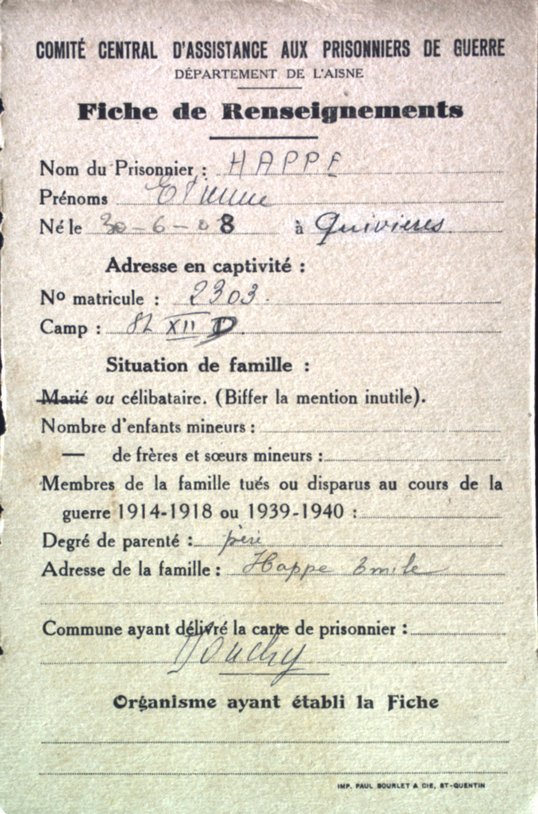 COMITÉ CENTRAL D'ASSISTANCE AUX PRISONNIERS DE GUERRE
DÉPARTEMENT DE L'AISNE
Fiche de Renseignements
Nom du Prisonnier : HAPPE
Prénoms Etienne
Né le 30-6-08 à Quivieres.
Adresse en captivité :
No matricule : 2303.
Camp : XII D.
Situation de famille :
Marié ou célibataire. (Biffer la mention inutile).
Nombre d'enfants mineurs :
— de frères et sœurs mineurs :
Membres de la famille tués ou disparus au cours de la
guerre 1914-1918 ou 1939-1940 :
Degré de parenté : père
Adresse de la famille : Happe Emile
Commune ayant délivré la carte de prisonnier :
Douchy
Organisme ayant établi la Fiche
IMP. PAUL BOURLET & CIE, ST-QUENTIN